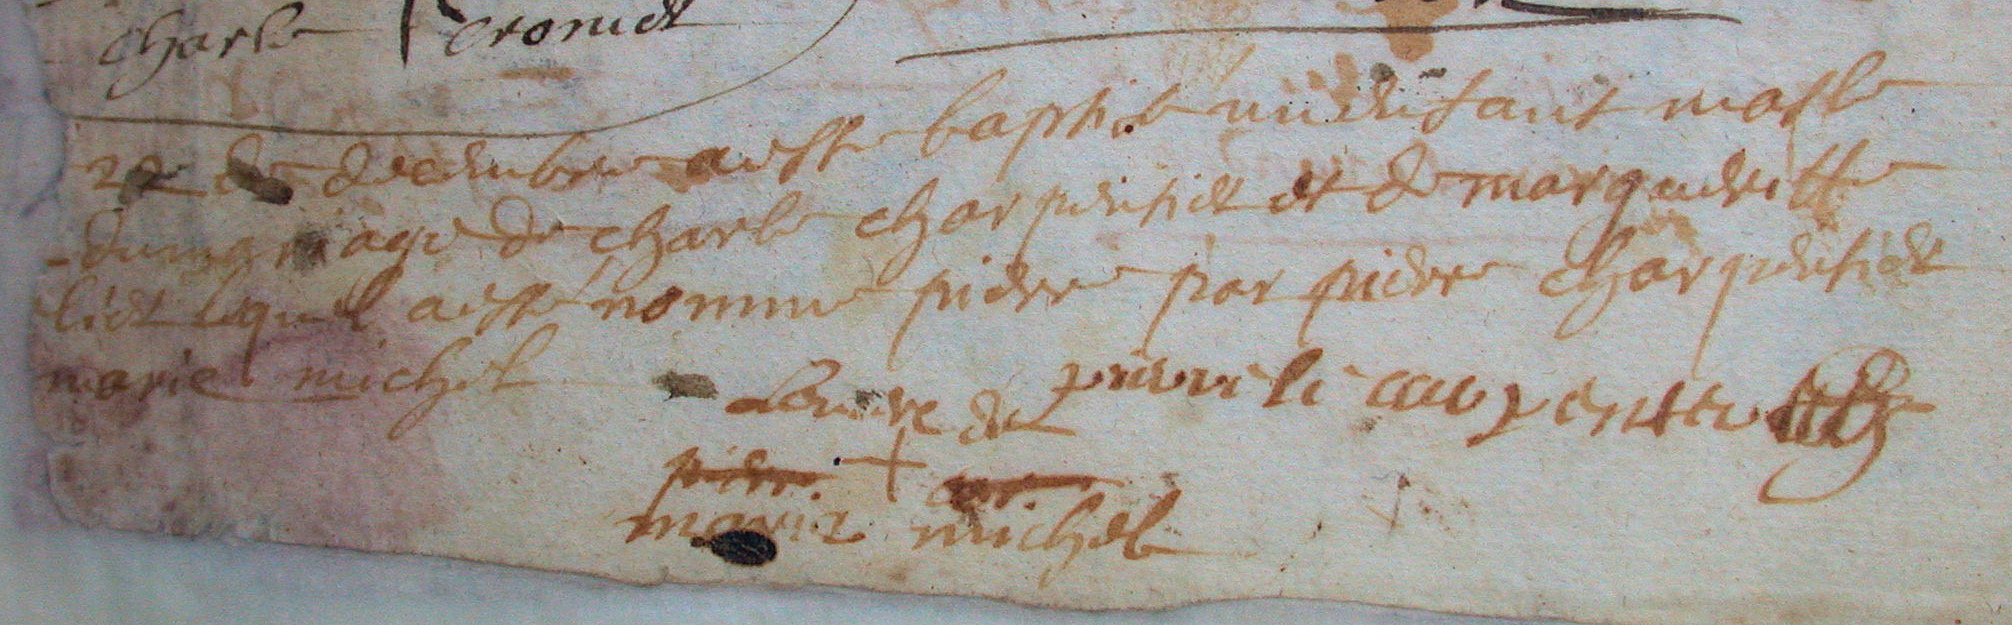 charle cronier
de decembre a esté baptisé un enfant masle
du mariage de charle charpentiet et de margueritte
liet lequel a esté nomme pierre par pierre charpentiet
marie michel
la marque de pierre le carpentier
pierre
marie michel